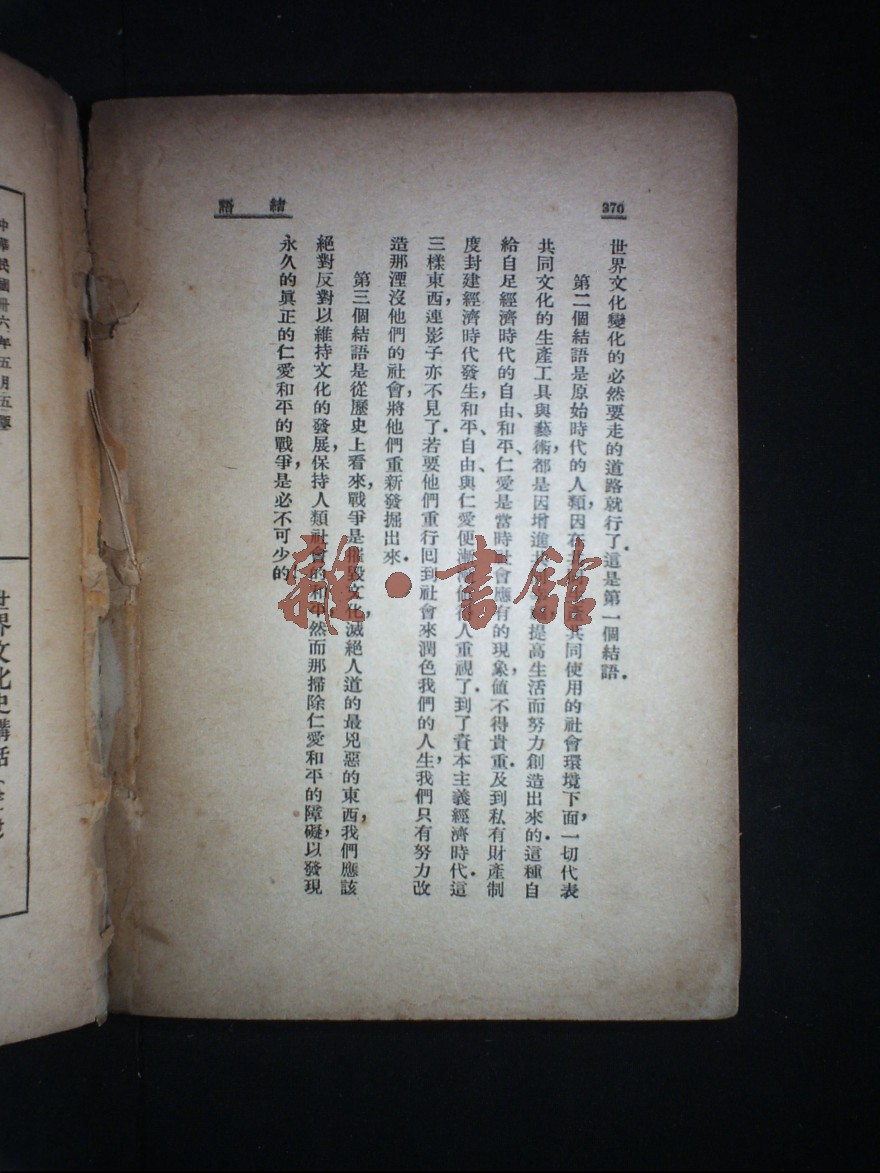 370
結語
世界文化變化的必然要走的道路就行了．這是第一個結語．
第二個結語是原始時代的人類，因在共同生產共同使用的社會環境下面，一切代表
共同文化的生產工具與藝術，都是因增進 提高生活而努力創造出來的．這種自
給自足經濟時代的自由、和平、仁愛是當時社會應有的現象，値不得貴重．及到私有財產制
度封建經濟時代發生，和平、自由與仁愛便漸漸 人重視了．到了資本主義經濟時代．這
三樣東西，連影子亦不見了．若要他們重行囘到社會來潤色我們的人生，我們只有努力改
造那湮沒他們的社會，將他們重新發掘出來．
第三個結語是從歷史上看來，戰爭是摧毀文化，滅絕人道的最兇惡的東西，我們應該
絕對反對以維持文化的發展，保持人類社會的和平．然而那掃除仁愛和平的障礙，以發現
永久的眞正的仁愛和平的戰爭，是必不可少的．
中華民國卅六年五月五
世界文化史講話
雜·書館